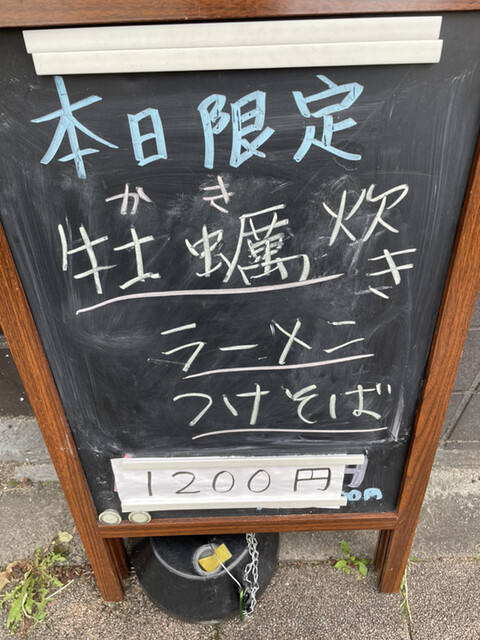 本日限定
かき
牡蠣炊き
ラーメン
つけそば
1200円
円